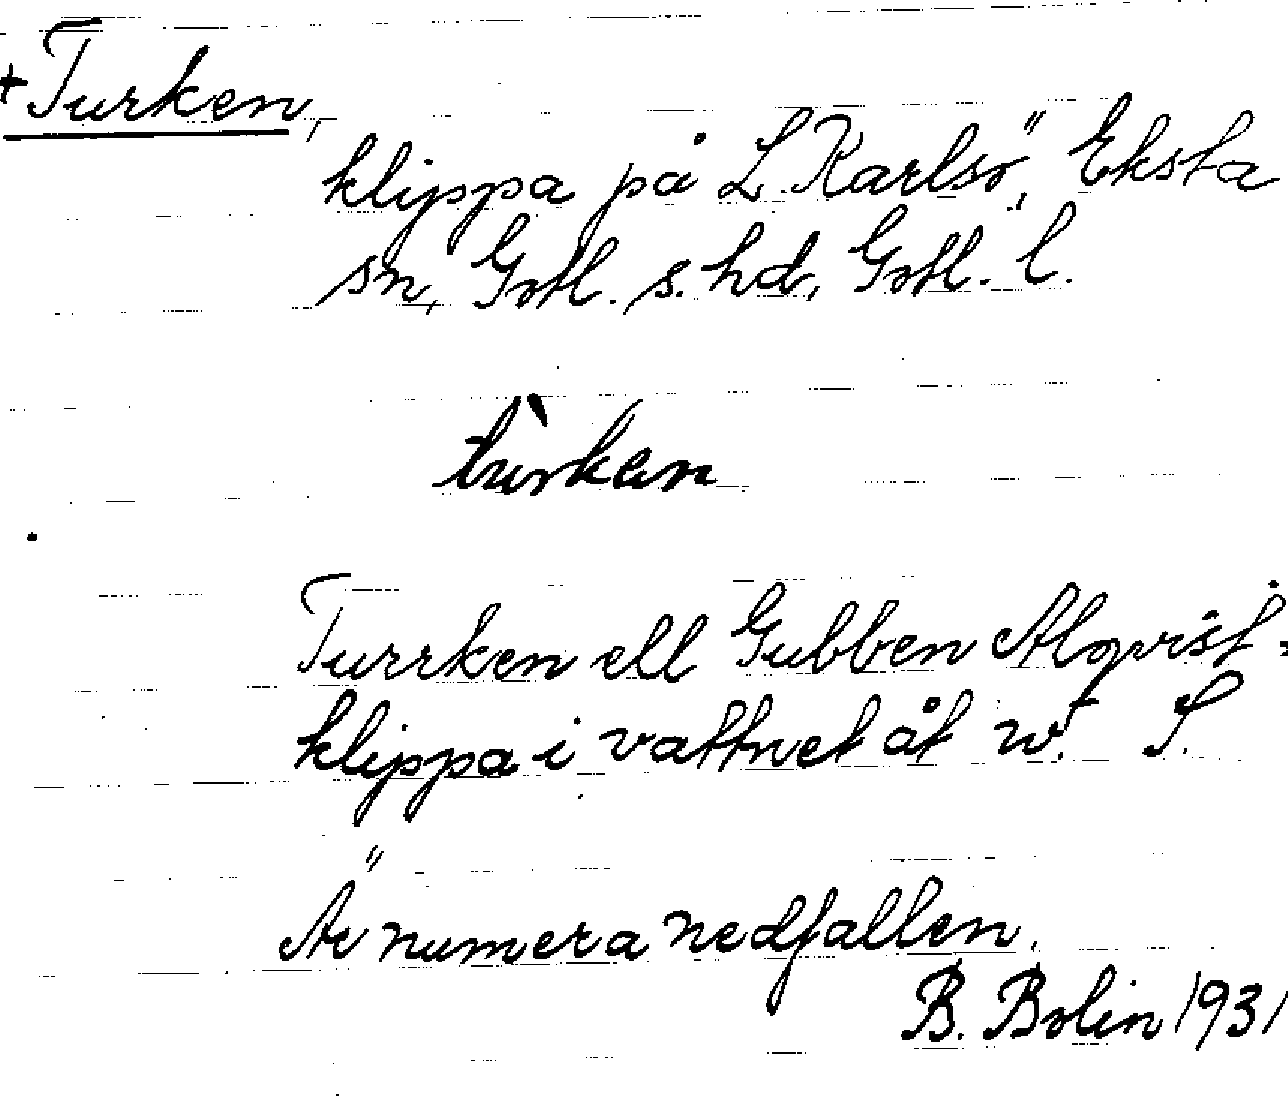 + Turken,
klippa på L. Karlsö, Eksta
sn, Gotl. s. hd, Gotl. l.
tùrken
Turrken ell Gubben Alqvist =
klippa i vattnet åt w. S.
Är numera nedfallen.
B. Bolin 1931